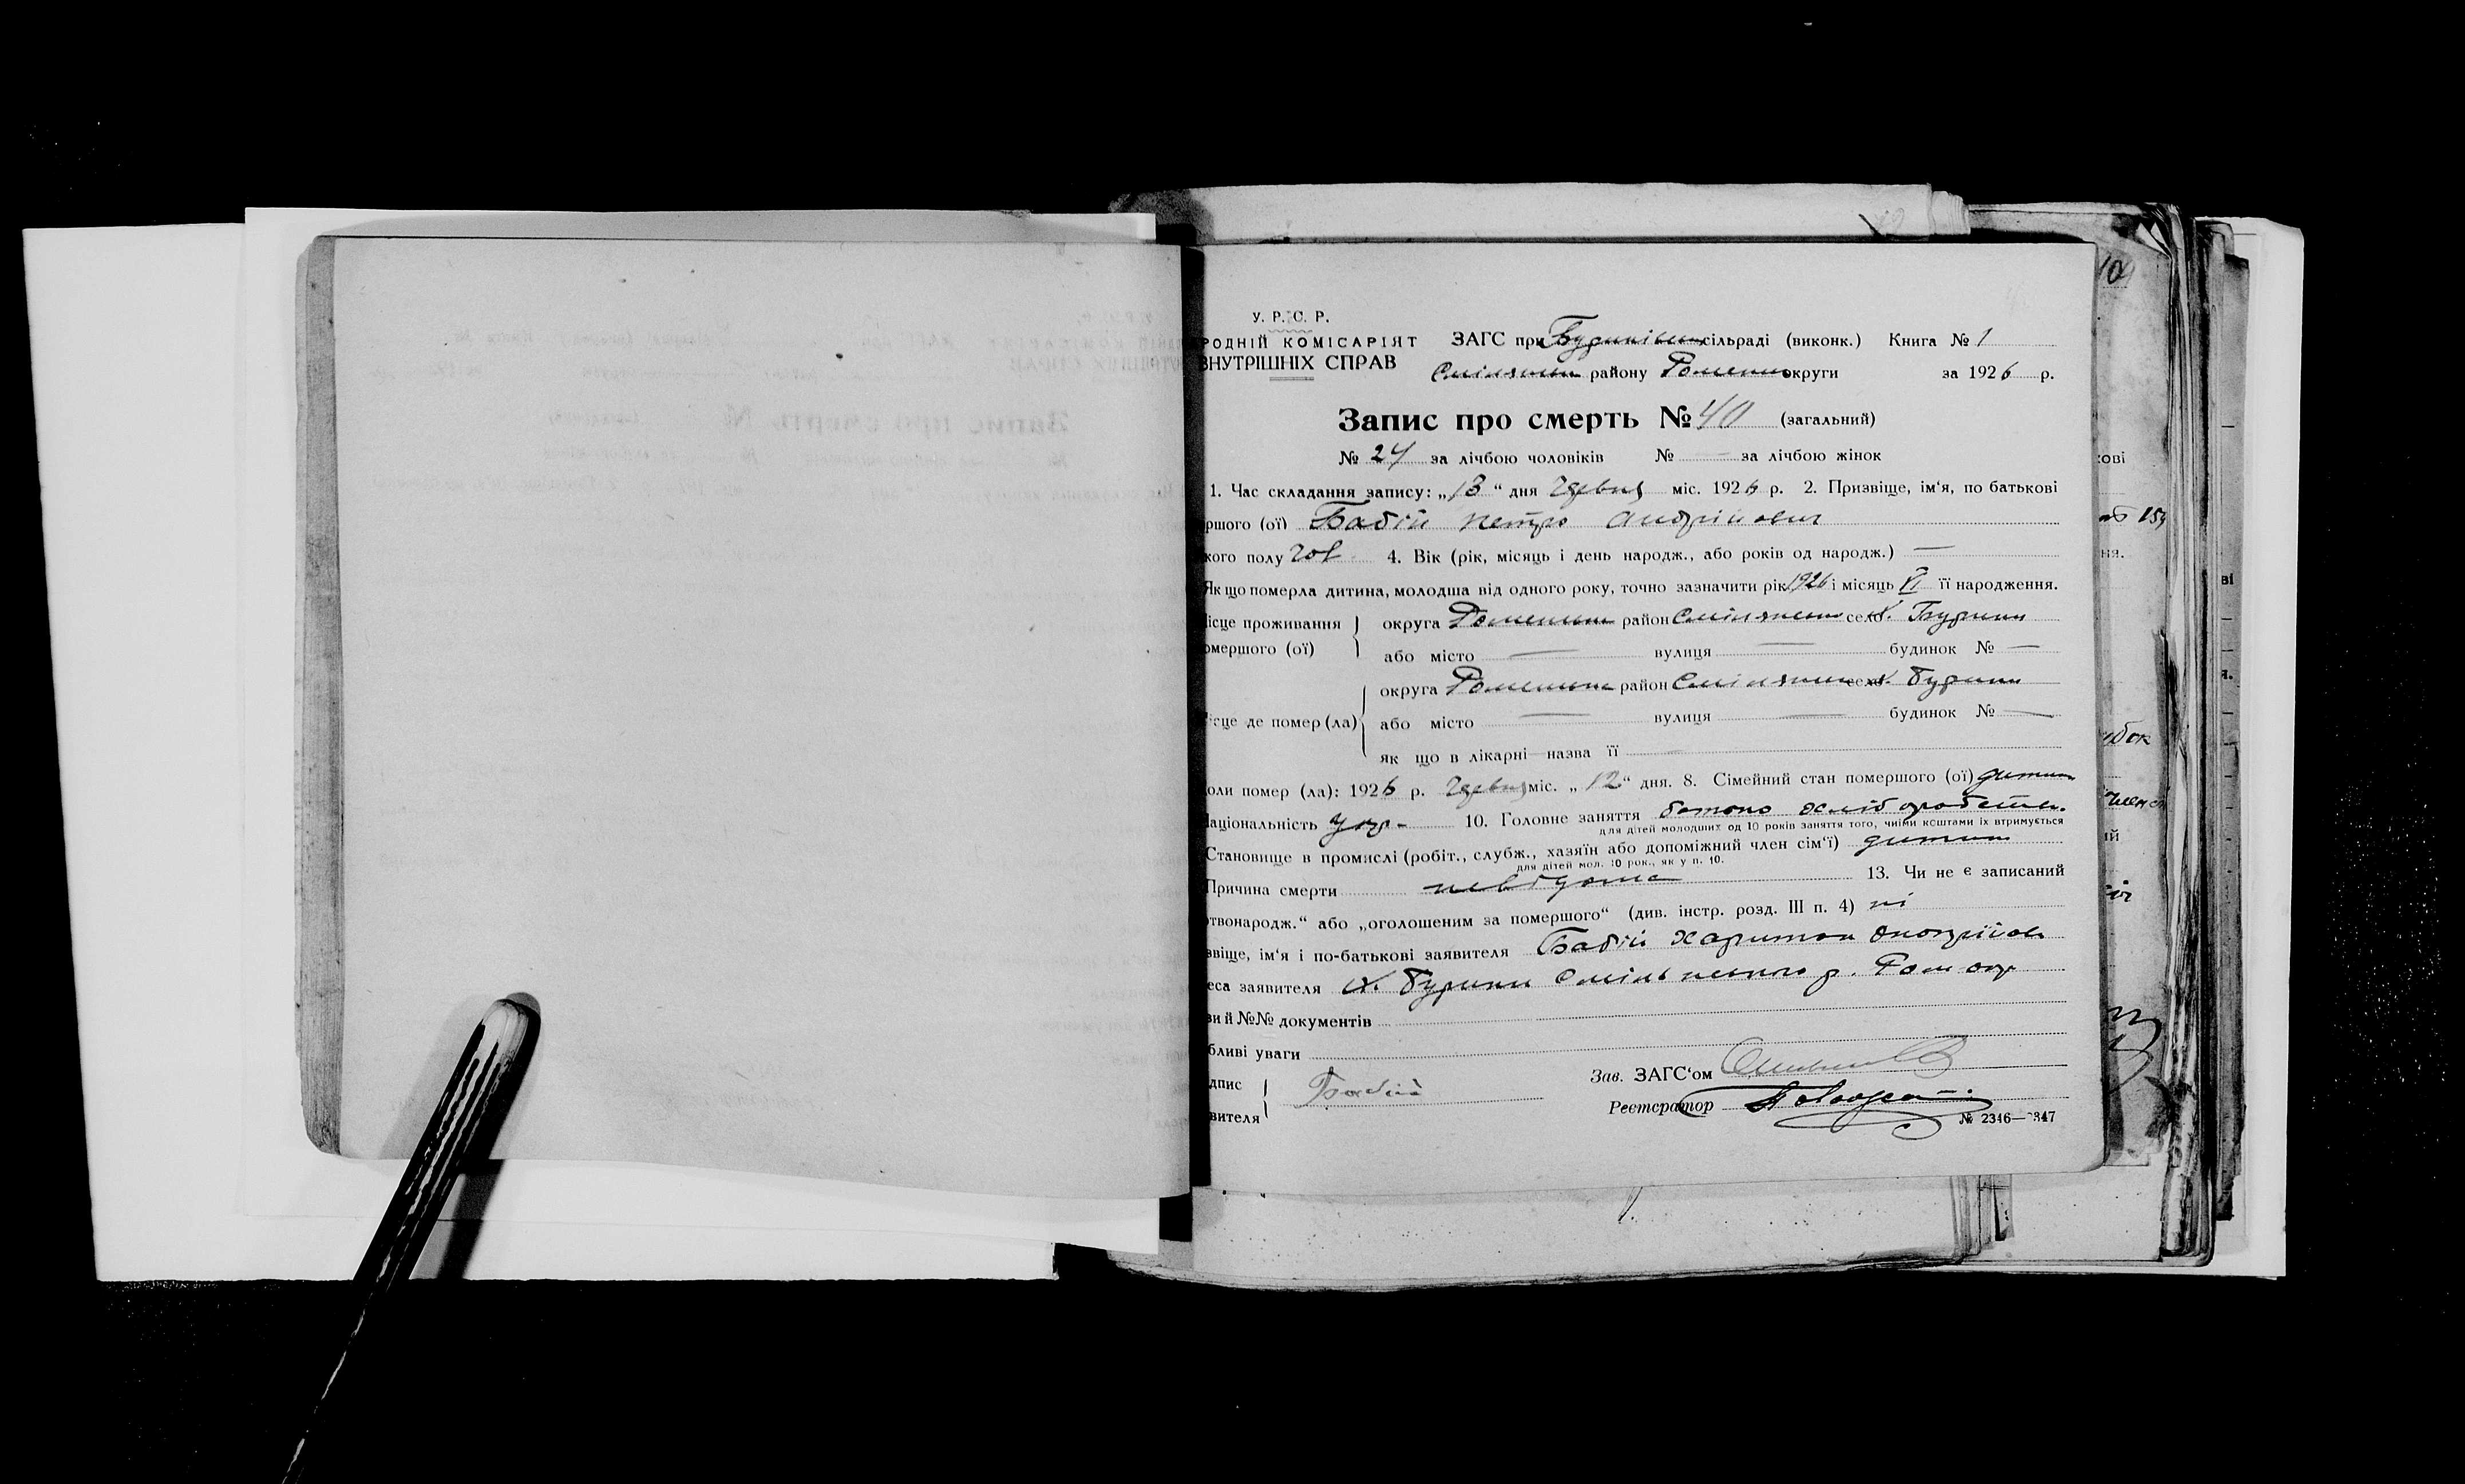 У. Р. С. Р.
РОДНІЙ КОМІСАРІЯТ ЗАГС при сільраді (виконк.) Книга № 1
ВНУТРІШНІХ СПРАВ району округи за 1926 р.
Запис про смерть № 40 (загальний)
№ 24 за лічбою чоловіків № — за лічбою жінок
1. Час складання запису: „13“ дня міс. 1926 р. 2. Призвіще, ім‘я, по батькові
ршого (ої) Бабій Петро Андрійович
кого полу чол 4. Вік (рік, місяць і день народж., або років од народж.) —
Якщо померла дитина, молодша від одного року, точно зазначити рік 1926 і місяць VI її народження.
ісце проживання округа Роменськ район село х. Бурики
омершого (ої) або місто — вулиця — будинок № —
округа Роменськ район село х. Бурики
ісце де помер (ла) або місто — вулиця — будинок № —
як що в лікарні—назва її
оли помер (ла): 1926 р. міс. „12“ дня. 8. Сімейний стан помершого (ої) дитина
аціональність укр- 10. Головне заняття
для дітей молодших од 10 років заняття того, чиїми коштами їх втримується
Становище в промислі (робіт., служб., хазяїн або допоміжний член сім‘ї) дитина
для дітей мол. 10 рок., як у п. 10.
Причина смерти невідома 13. Чи не є записаний
твонародж.“ або „оголошеним за помершого“ (див. інстр. розд. III п. 4) ні
звіще, ім‘я і по-батькові заявителя Бабій Харитон
еса заявителя х. Бурики р. Ром окр
ви й №№ документів
бливі уваги
дпис Зав. ЗАГС‘ом
Бабій
вителя Реєстратор
№ 2346—2347